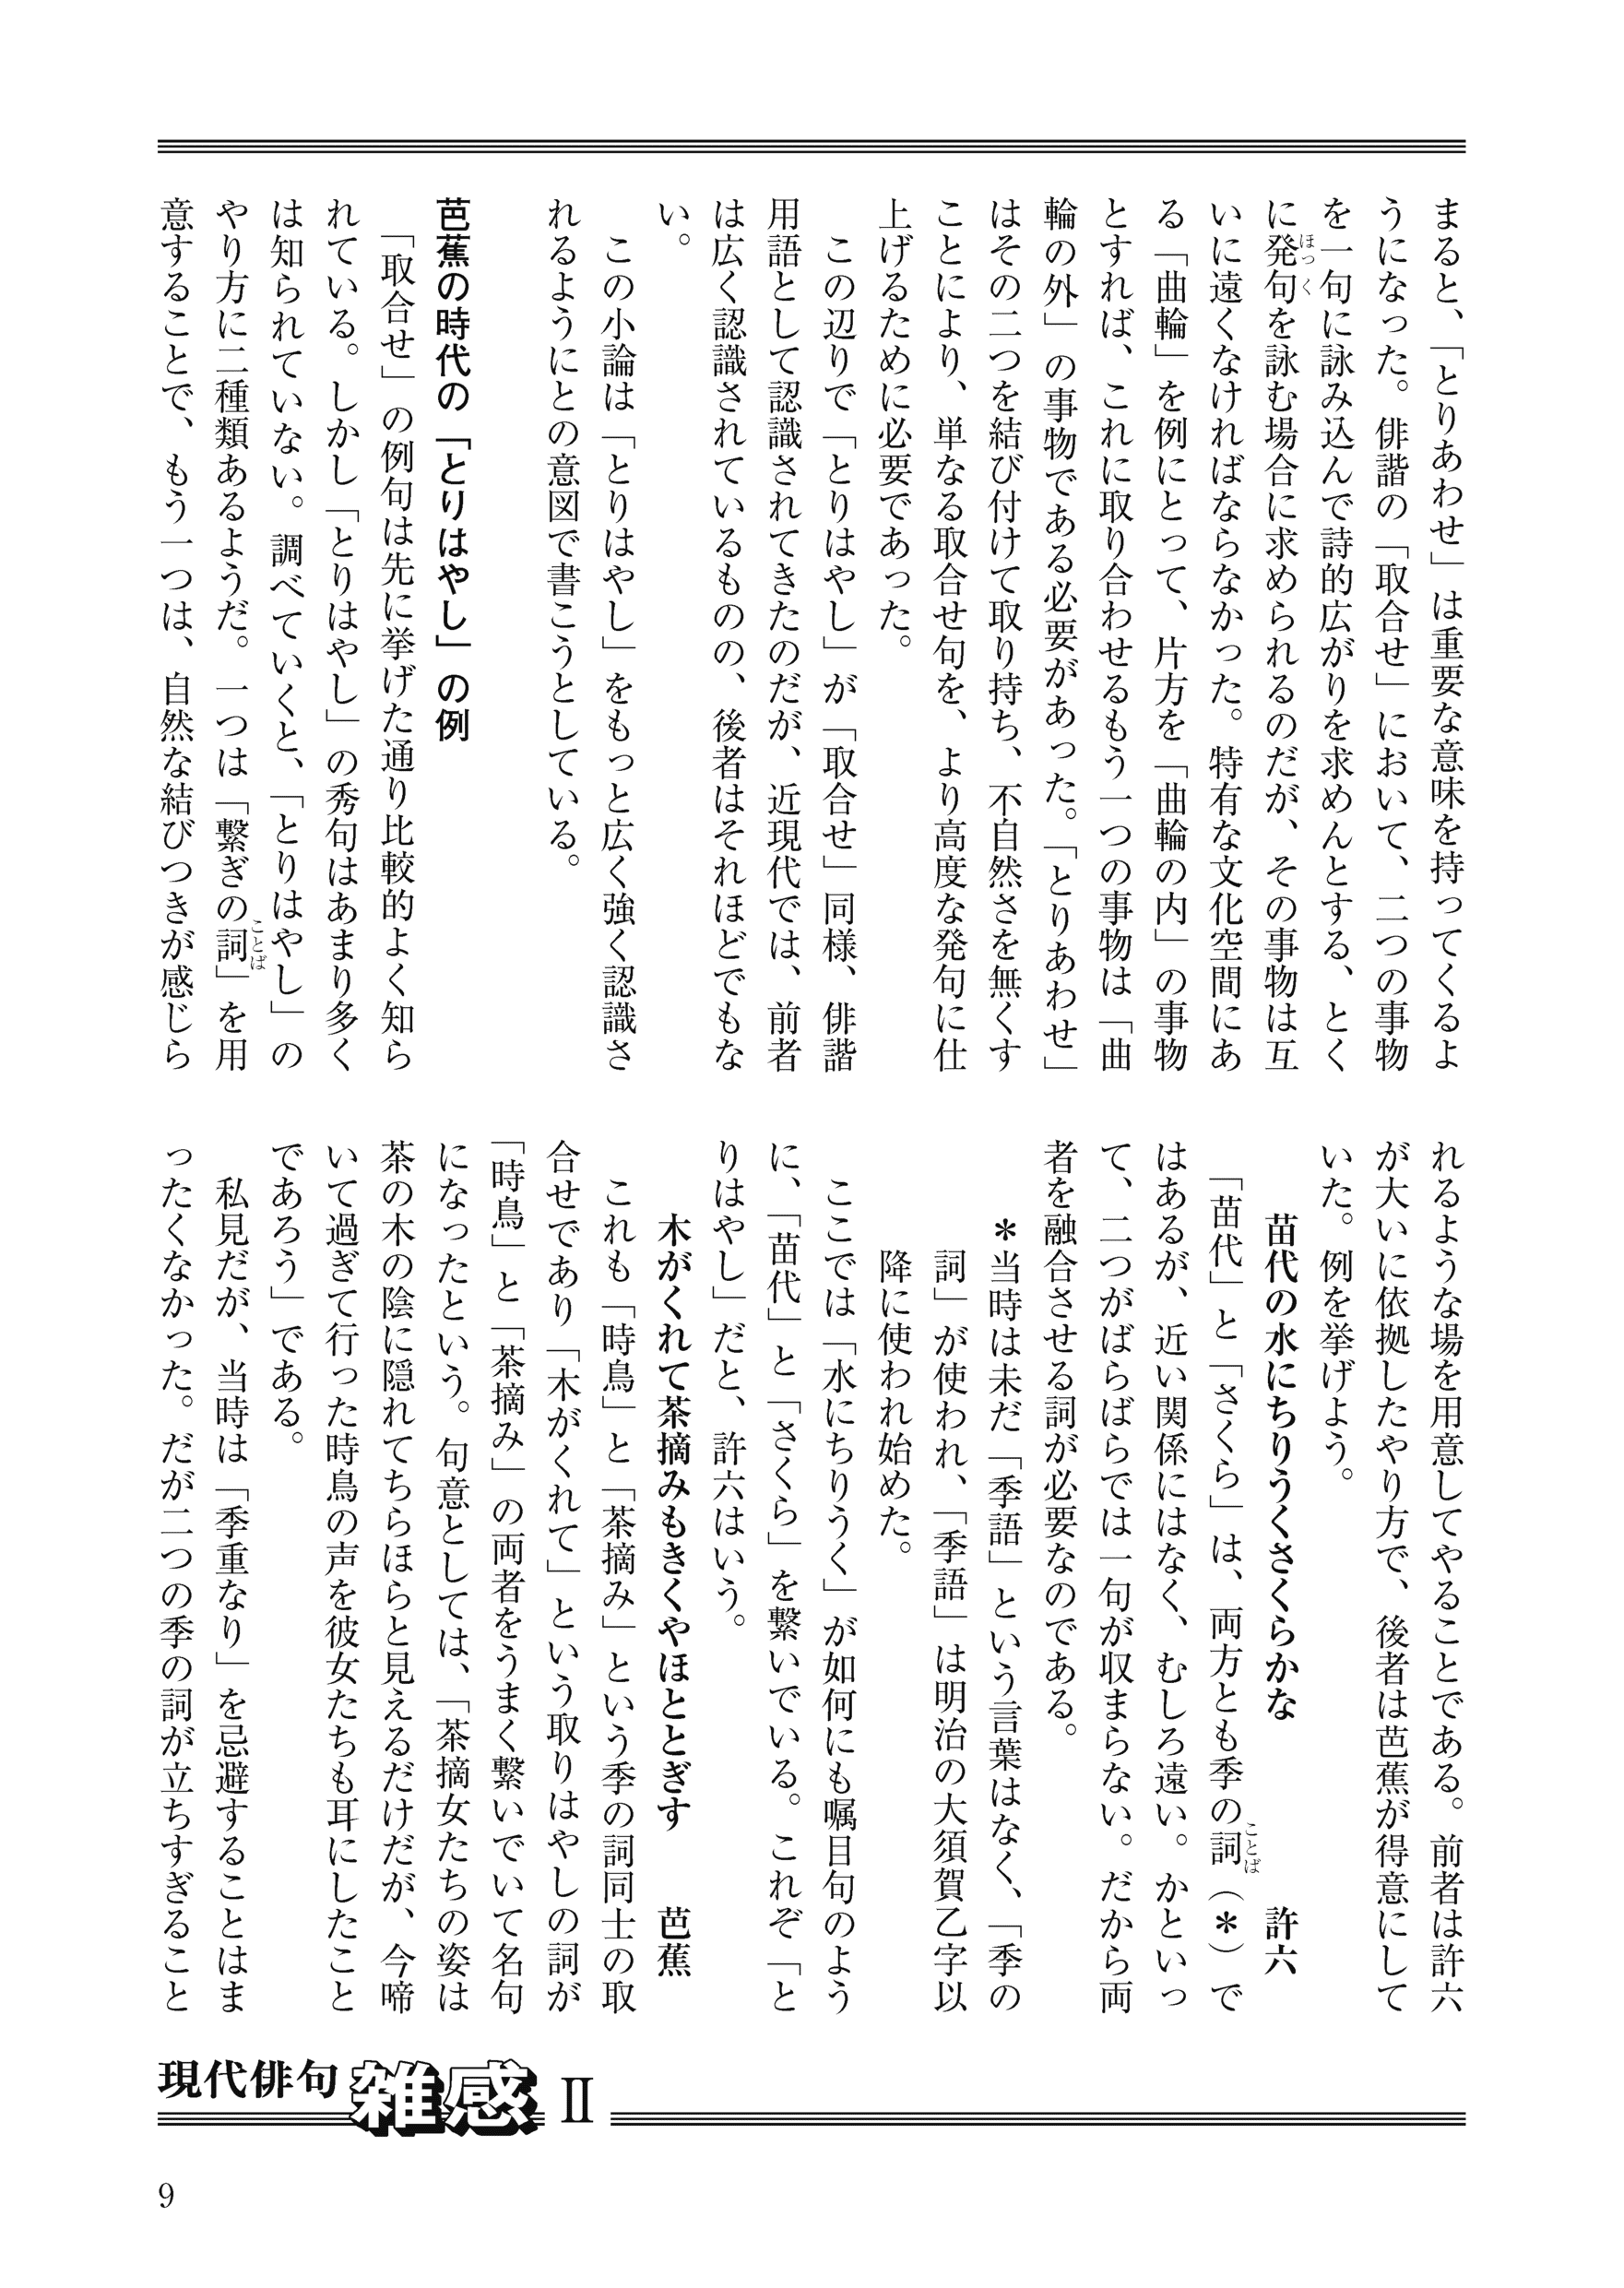 まると、「とりあわせ」は重要な意味を持ってくるよ
うになった。俳諧の「取合せ」において、二つの事物
を一句に詠み込んで詩的広がりを求めんとする、とく
に発句を詠む場合に求められるのだが、その事物は互
ほっく
いに遠くなければならなかった。特有な文化空間にあ
る「曲輪」を例にとって、片方を「曲輪の内」の事物
とすれば、これに取り合わせるもう一つの事物は「曲
輪の外」の事物である必要があった。「とりあわせ」
はその二つを結び付けて取り持ち、不自然さを無くす
ことにより、単なる取合せ句を、より高度な発句に仕
上げるために必要であった。
この辺りで「とりはやし」が「取合せ」同様、俳諧
用語として認識されてきたのだが、近現代では、前者
は広く認識されているものの、後者はそれほどでもな
い。
この小論は「とりはやし」をもっと広く強く認識さ
れるようにとの意図で書こうとしている。
芭蕉の時代の「とりはやし」の例
「取合せ」の例句は先に挙げた通り比較的よく知ら
れている。しかし「とりはやし」の秀句はあまり多く
は知られていない。調べていくと、「とりはやし」の
やり方に二種類あるようだ。一つは「繋ぎの詞」を用
ことば
意することで、もう一つは、自然な結びつきが感じら
れるような場を用意してやることである。前者は許六
が大いに依拠したやり方で、後者は芭蕉が得意にして
いた。例を挙げよう。
苗代の水にちりうくさくらかな　許六
「苗代」と「さくら」は、両方とも季の詞（＊）で
ことば
はあるが、近い関係にはなく、むしろ遠い。かといっ
て、二つがばらばらでは一句が収まらない。だから両
者を融合させる詞が必要なのである。
＊当時は未だ「季語」という言葉はなく、「季の
詞」が使われ、「季語」は明治の大須賀乙字以
降に使われ始めた。
ここでは「水にちりうく」が如何にも嘱目句のよう
に、「苗代」と「さくら」を繋いでいる。これぞ「と
りはやし」だと、許六はいう。
木がくれて茶摘みもきくやほととぎす　芭蕉
これも「時鳥」と「茶摘み」という季の詞同士の取
合せであり「木がくれて」という取りはやしの詞が
「時鳥」と「茶摘み」の両者をうまく繋いでいて名句
になったという。句意としては、「茶摘女たちの姿は
茶の木の陰に隠れてちらほらと見えるだけだが、今啼
いて過ぎて行った時鳥の声を彼女たちも耳にしたこと
であろう」である。
私見だが、当時は「季重なり」を忌避することはま
ったくなかった。だが二つの季の詞が立ちすぎること
現代俳句 雑感 Ⅱ
9